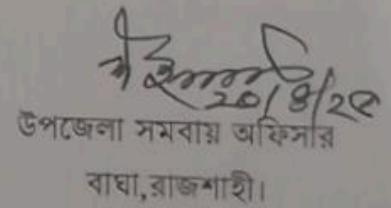 ২০/৪/২৫
উপজেলা সমবায় অফিসার
বাঘা,রাজশাহী।